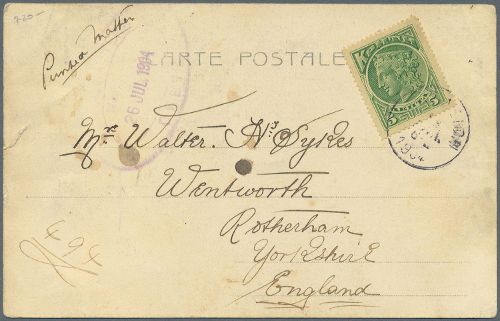 720-
Printed Matter
CARTE POSTALE
26 JUL 1904
Mrs Walter. H. Sykes
Wentworth
Rotherham
Yorkshire
England
494
5
1904